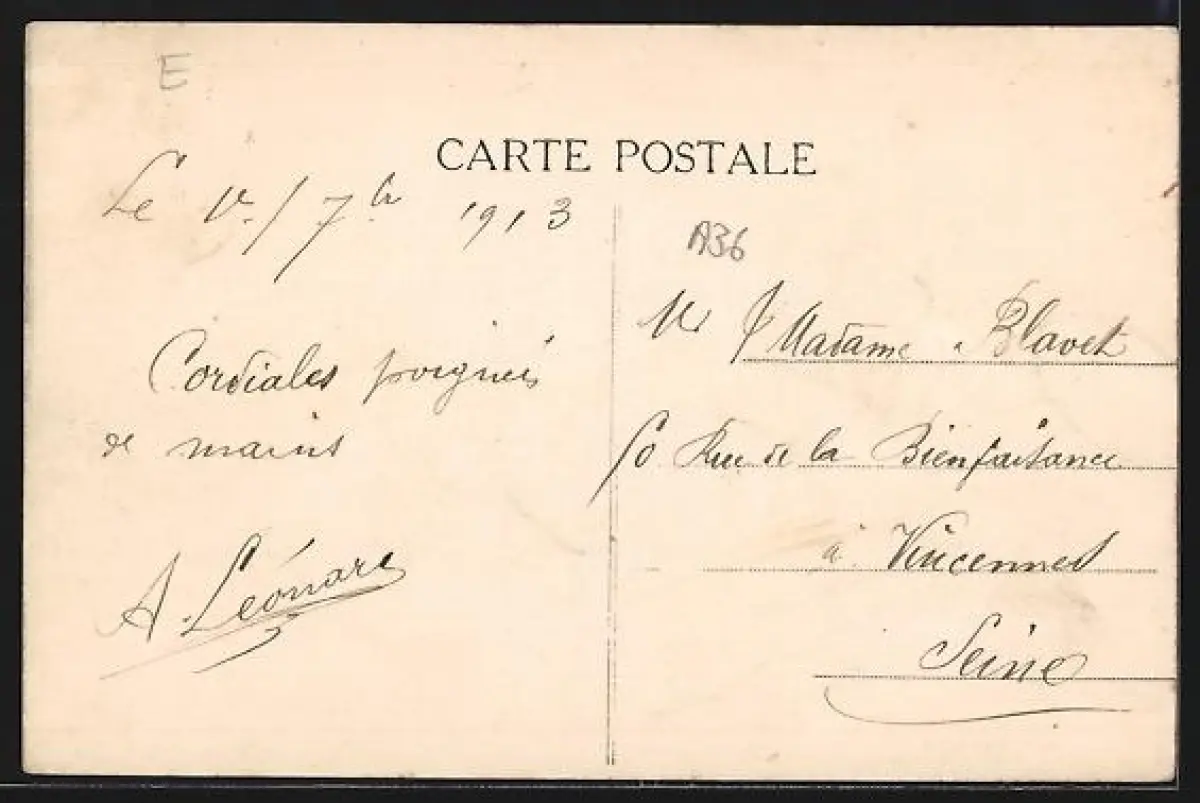 E
CARTE POSTALE
Le 1er / 7bre 1913
A36
Cordiales poignées
de mains
A. Léonard
Mr & Madame Blavet
50 Rue de la Bienfaisance
à Vincennes
Seine